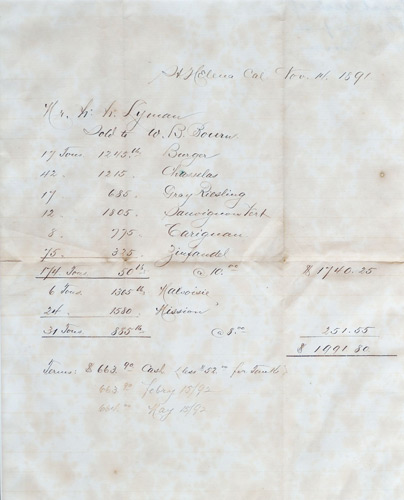 St Helena Cal Nov. 14. 1891
Mr. W W Lyman
Sold to W. B. Bourn
17 Tons 1245 lb Burger
42 " 1215 Chasselas
17 685 Gray Riesling
12 . 1805 Sauvignon Vert
8 . 775 Carignan
75 . 325 Zinfandel
174 Tons 50 lb @ 10.00 $ 1740.25
6 Tons 1305 lb Malvoisie
24 . 1580 Mission
31 Tons 885 lb @ 8.00 251.55
$ 1991.80
Terms: $ 663.90 Cash (less $52.00 for Tanks)
663 90 Febry 15/92
664.00 May 15/92